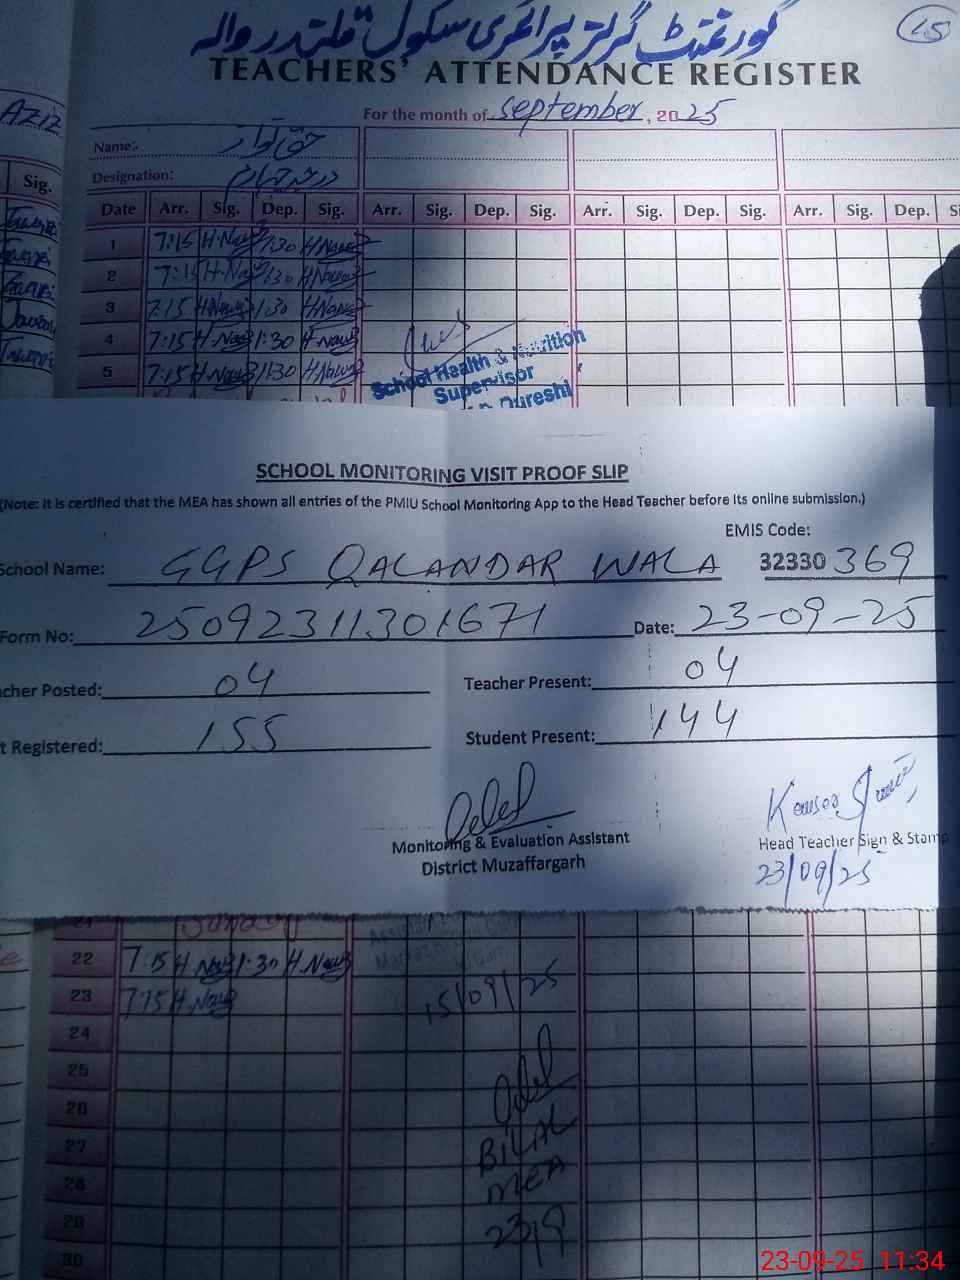 گورنمنٹ گرلز پرائمری سکول قلندر والہ
45
TEACHERS' ATTENDANCE REGISTER
For the month of September, 2025
AZIZ
Name:
Designation:
Sig.
Date Arr. Sig. Dep. Sig. Arr. Sig. Dep. Sig. Arr. Sig. Dep. Sig. Arr. Sig. Dep.
1 7:15 H.Nawaz 1:30 H.Nawaz
2 7:15 H.Nawaz 1:30 H.Nawaz
3 7:15 H.Nawaz 1:30 H.Nawaz
4 7:15 H.Nawaz 1:30 H.Nawaz
5 7:15 H.Nawaz 1:30 H.Nawaz
School Health & Nutrition
Supervisor
Qureshi
SCHOOL MONITORING VISIT PROOF SLIP
(Note: It is certified that the MEA has shown all entries of the PMIU School Monitoring App to the Head Teacher before its online submission.)
EMIS Code:
School Name: GGPS QALANDAR WALA 32330 369
Form No: 25092311301671 Date: 23-09-25
cher Posted: 04 Teacher Present: 04
t Registered: 155 Student Present: 144
Monitoring & Evaluation Assistant
District Muzaffargarh
Kausar
Head Teacher Sign & Stamp
23/09/25
21 Sunday
22 7:15 H.Nawaz 1:30 H.Nawaz
23 7:15 H.Nawaz
15/09/25
24
25
26
27
28
29
30
BILAL
MEA
23/9
23-09-25 11:34